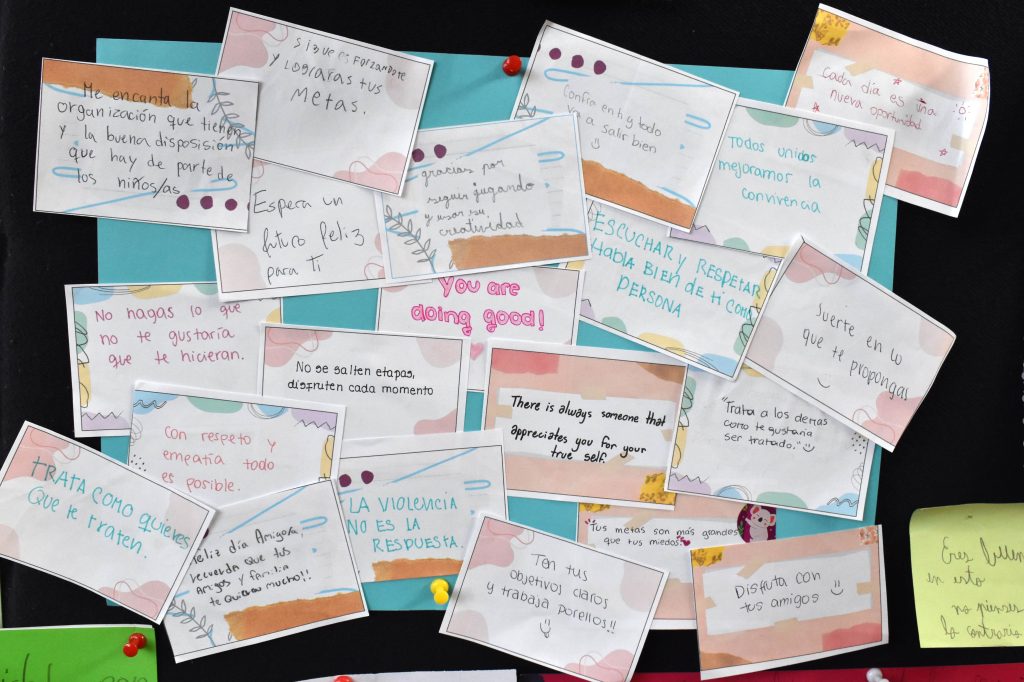 Me encanta la
organización que tienen
y la buena disposición
que hay de parte de
los niños/as
SIGUE ESFORZANDOTE
Y LOGRARAS TUS
METAS.
Confia en ti y todo
va a salir bien
Cada día es una
nueva oportunidad
Todos unidos
mejoramos la
convivencia
gracias por
seguir jugando
y usar su
creatividad
Espera un
futuro feliz
para ti
ESCUCHAR y RESPETAR
Habla BIEN DE ti como
PERSONA
You are
doing good!
No hagas lo que
no te gustaría
que te hicieran.
Suerte en lo
que te propongas
No se salten etapas,
disfruten cada momento
There is always someone that
appreciates you for your
true self.
"Trata a los demas
como te gustaria
ser tratado."
Con respeto y
empatía todo
es posible.
TRATA COMO quieres
Que te traten.
LA VIOLENCIA
NO ES LA
RESPUESTA.
Feliz día Amigora,
recuerda que tus
Amigos y familia
te quieren mucho!!
Ten tus
objetivos claros
y trabaja por ellos!!
Tus metas son más grandes
que tus miedos!
Disfruta con
tus amigos
Eres
en esto
no pienses
lo contrario